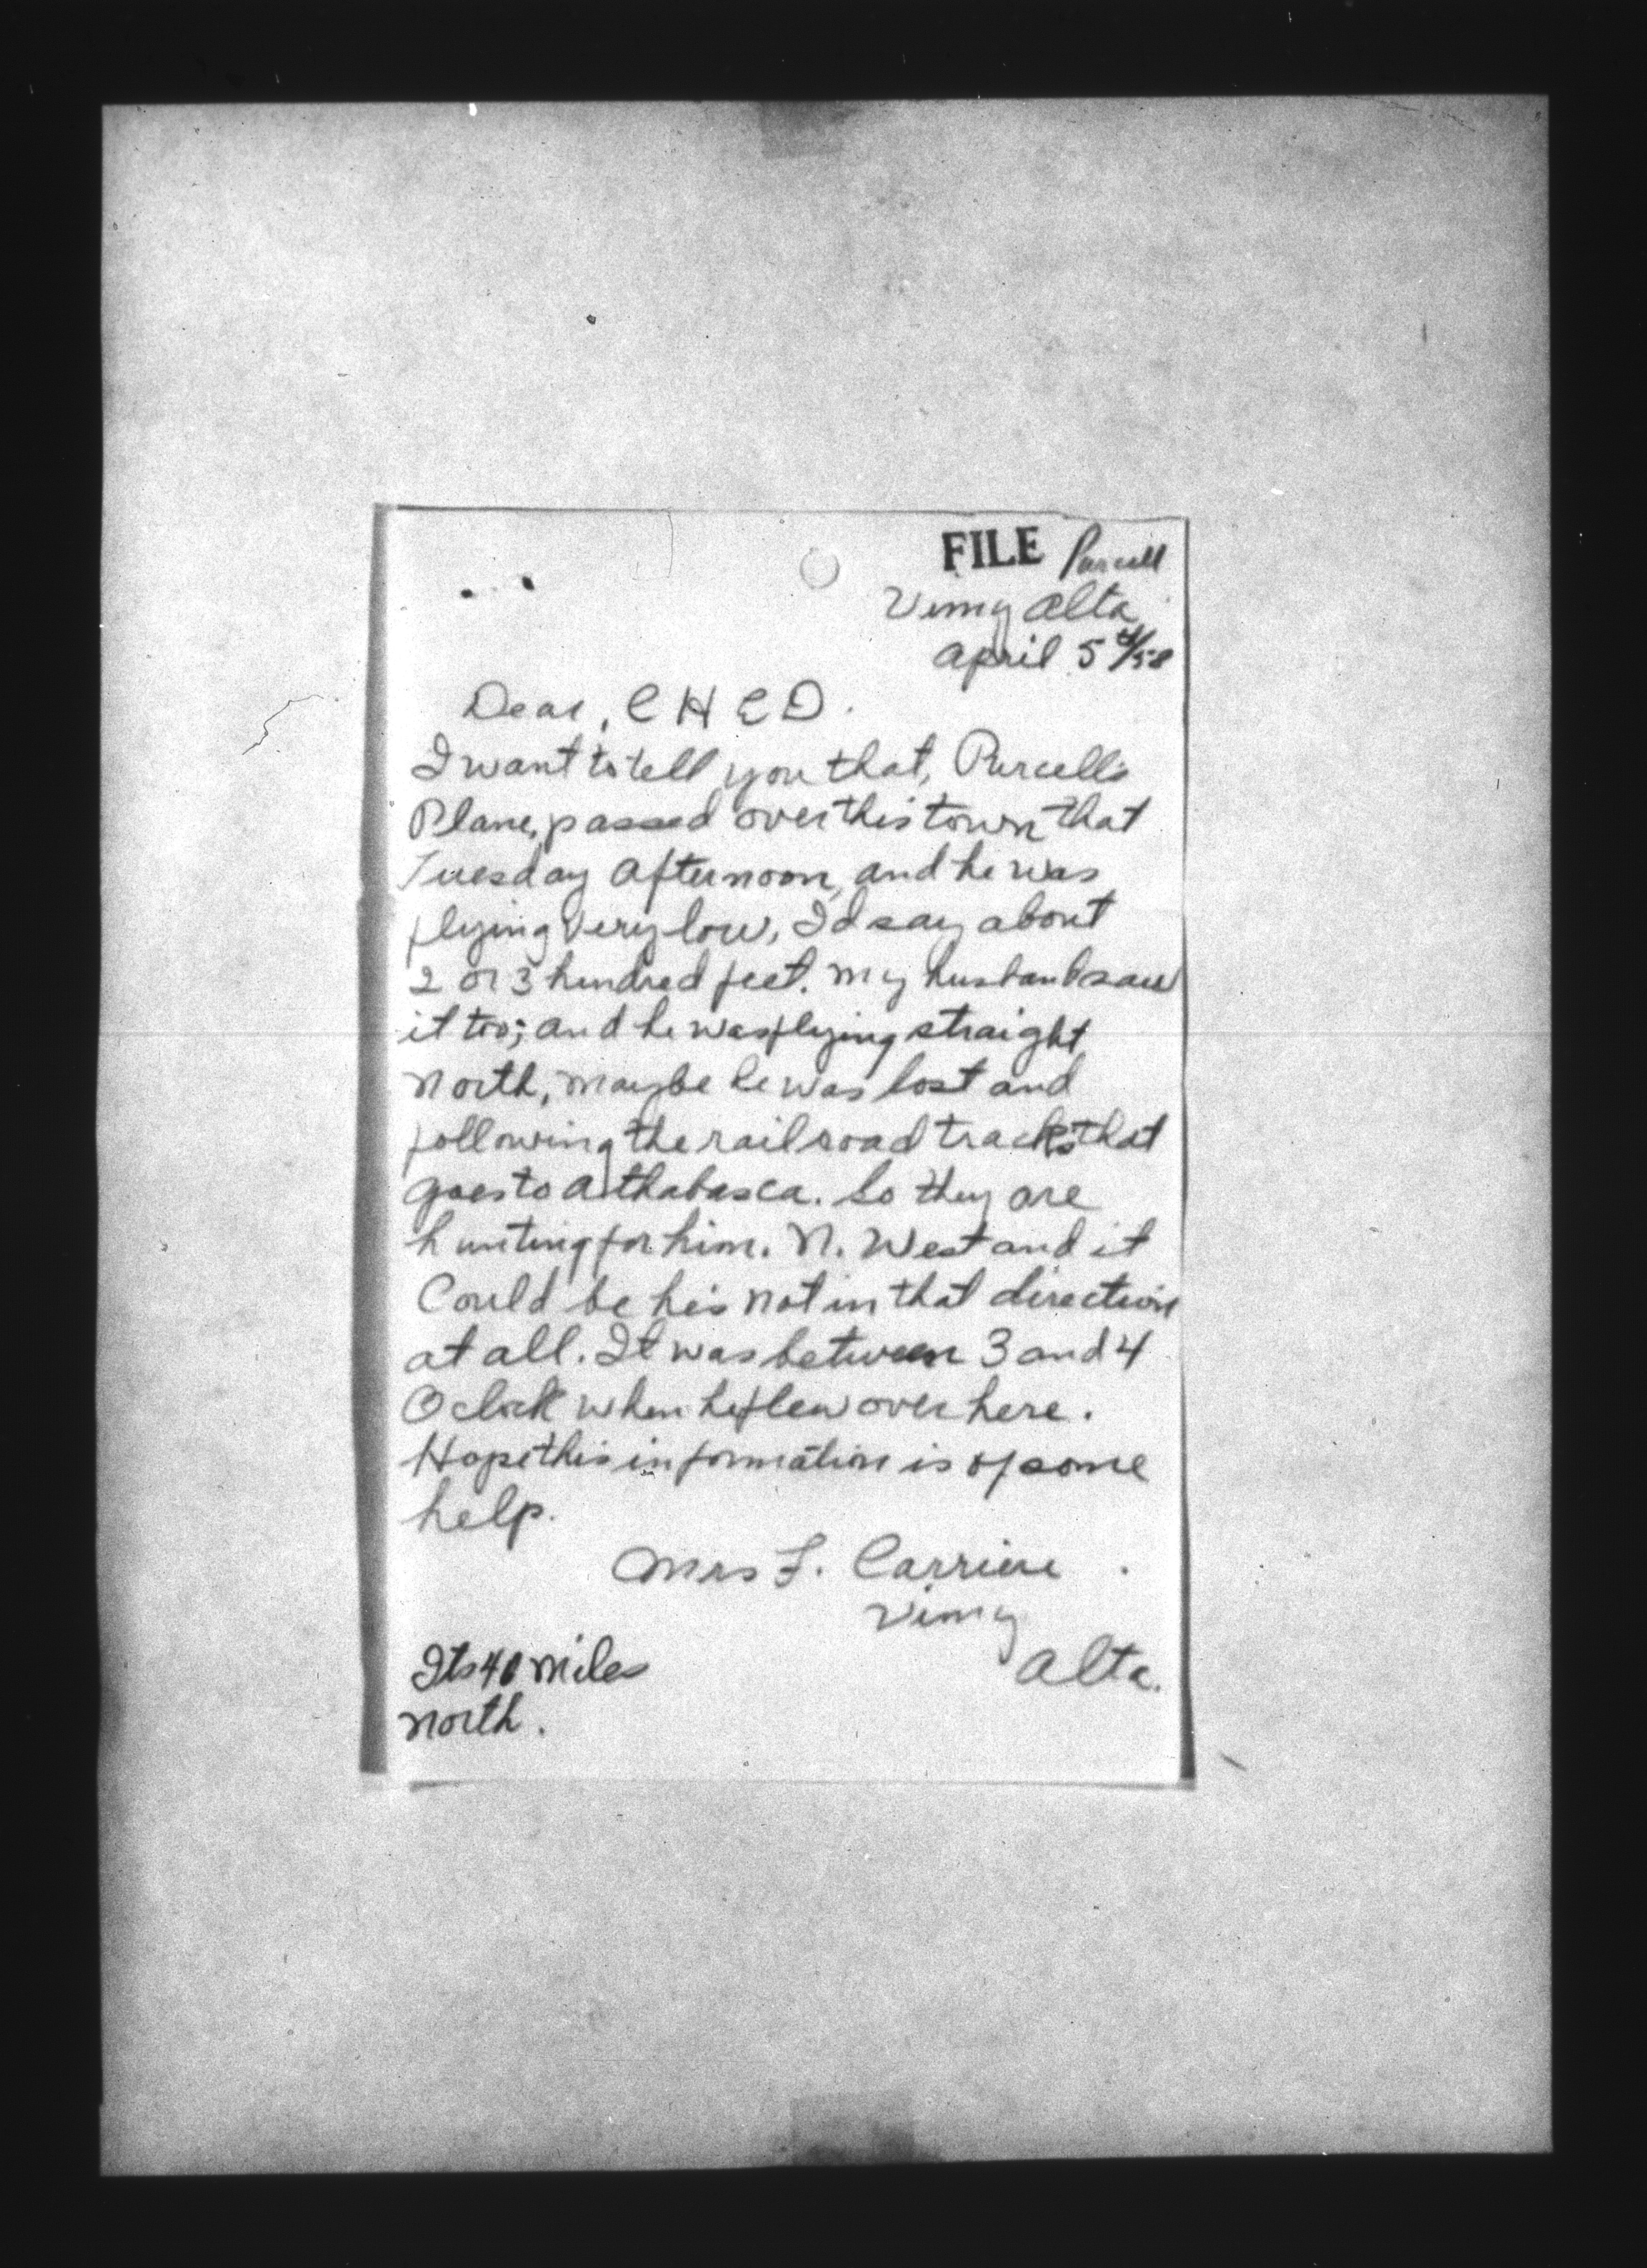 FILE Purcell
Vimy Alta
April 5th/58
Dear, CHED.
I want to tell you that, Purcells
Plane, passed over this town that
Tuesday afternoon, and he was
flying very low, I'd say about
2 or 3 hundred feet. My husband saw
it too; and he was flying straight
North, maybe he was lost and
following the railroad tracks that
goes to Athabasca. So they are
hunting for him. N. West and it
Could be his not in that direction
at all. It was between 3 and 4
Oclock when he flew over here.
Hope this information is of some
help.
Mrs F. Carriere.
Vimy
Alta.
Its 40 miles
North.